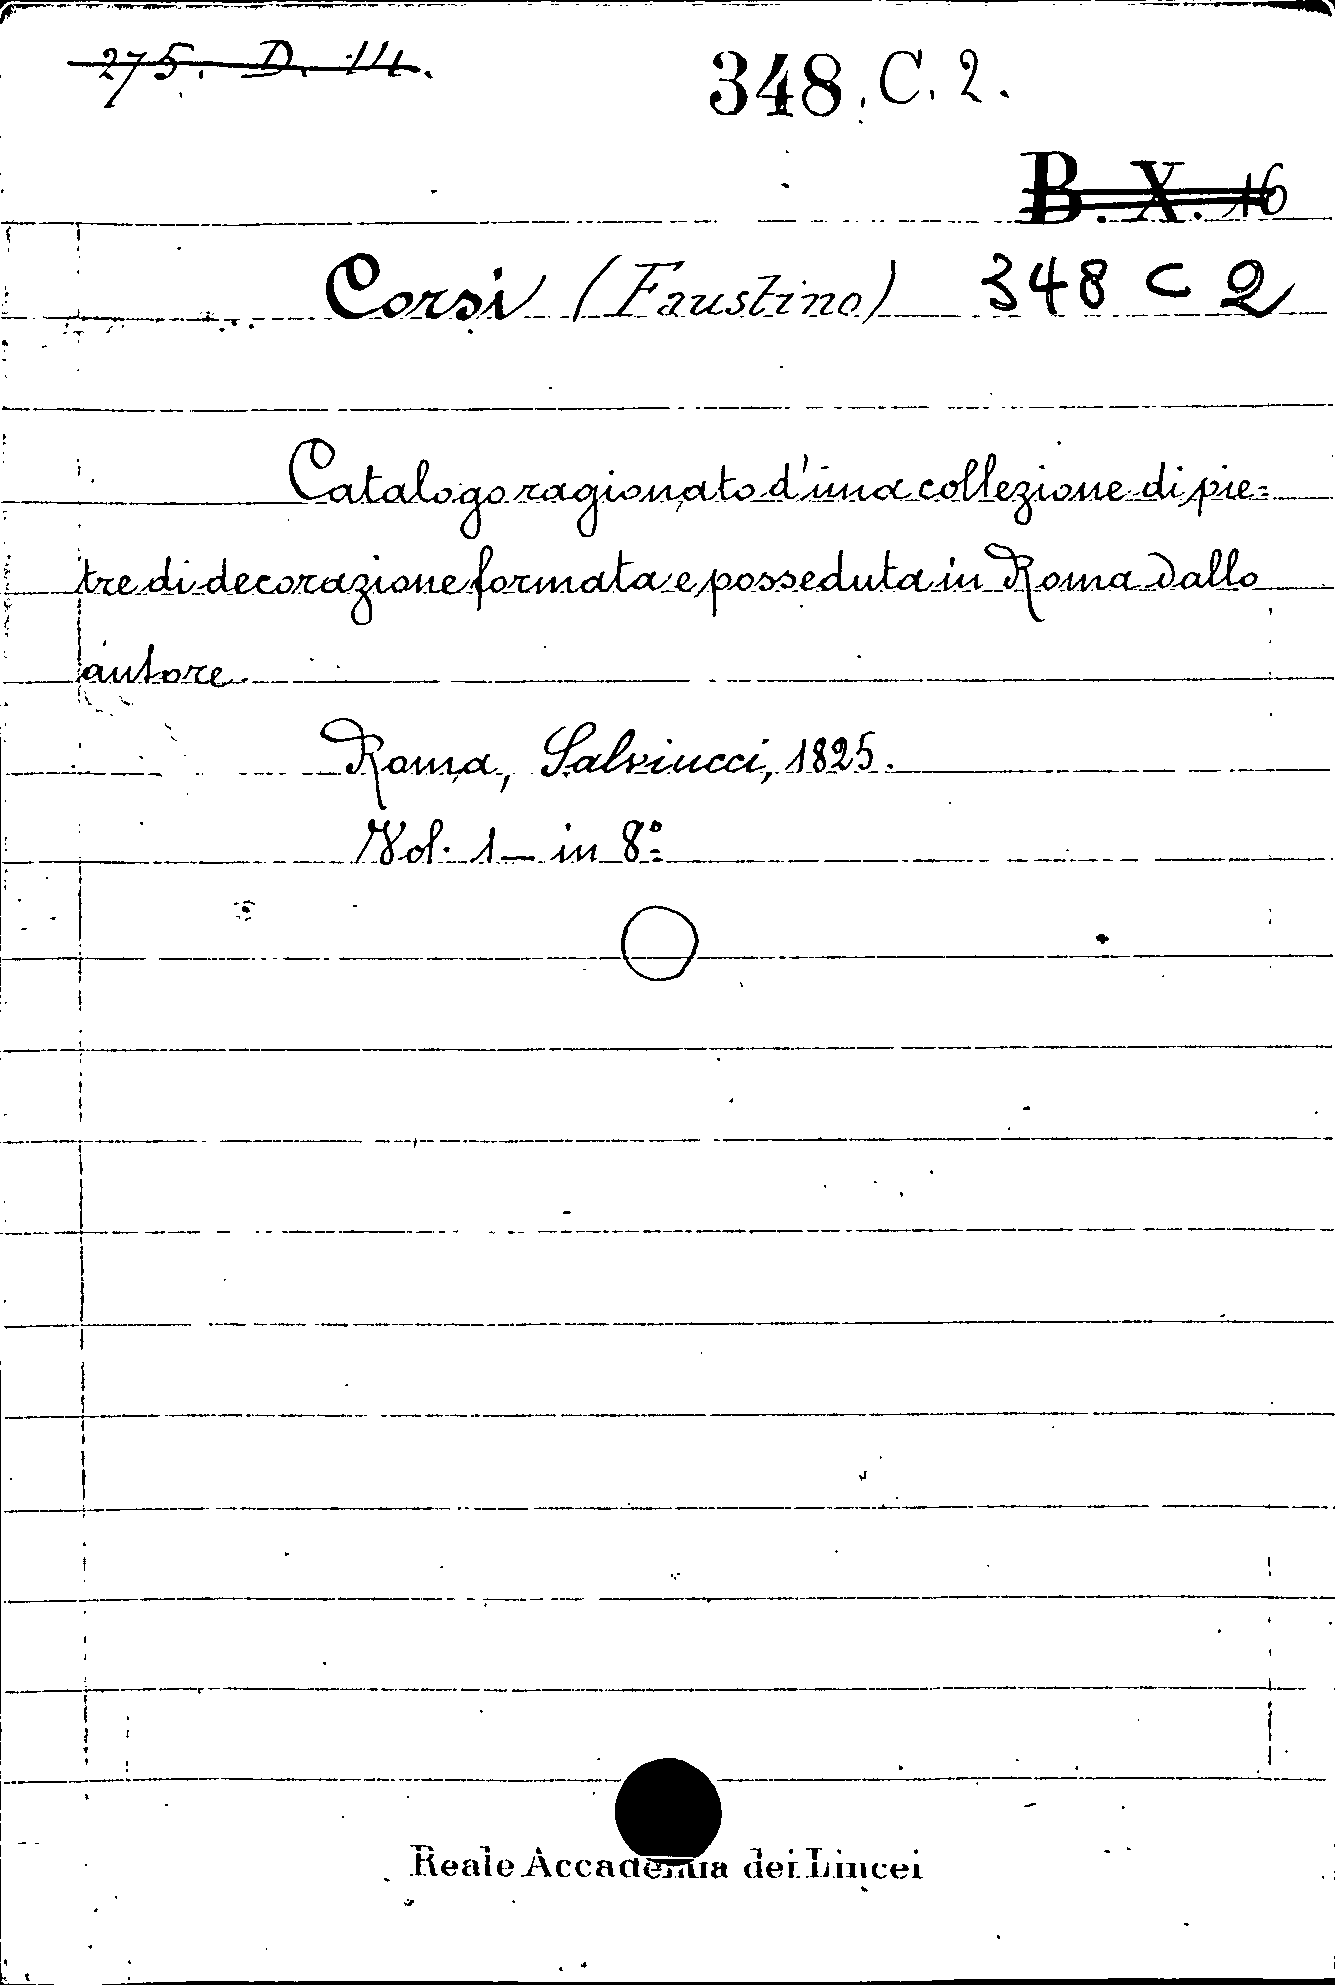 275. D. 14.
348. C. 2.
B. X. 16
Corsi (Faustino) 348 C 2
Catalogo ragionato d'una collezione di pie=
tre di decorazione formata e posseduta in Roma dallo
autore.
Roma, Salviucci, 1825.
Vol. 1 — in 8°
Reale Accademia dei Lincei